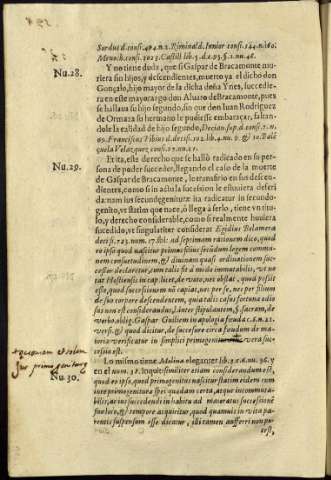 Surdus d. consi. 404. n. 2. Riminald. Iunior consi. 144. n. 160.
Menoch. consi. 1023. Castill. lib. 5. d. c. 93. §. 1. nu. 48.
Nu. 28. Y no tiene duda, que si Gaspar de Bracamonte mu-
riera sin hijos, y descendientes, muerto ya el dicho don
Gonçalo, hijo mayor de la dicha doña Ynes, succedie-
ra en este mayorazgo don Aluaro de Bracamonte, pues
se hallaua su hijo segundo, sin que don Iuan Rodriguez
de Ormaza su hermano le pudiesse embaraçar, faltan-
dole la calidad de hijo segundo,
Nu. 29. Et ita, este derecho que se hallò radicado en su per-
sona de poder succeder, llegando el caso de la muerte
de Gaspar de Bracamonte, le transmitio en sus descen-
dientes, como si in actu la sucession le estuuiera deferi-
da nam ius secundogeniturae ita radicatur in secundo-
genito, vt statim que nace, ò llega à serlo, tiene vn titu-
lo, y derecho considerable, como si realmente huuiera
sucedido, vt singulariter considerat Egidius Belamera
decis. 723. num. 17. ibi: ad septimam rationem dico, quod
eo ipso quod nascitur primus filius secũdum legem commu-
nem consuetudinem, & diuinam quasi ordinationem suc-
cessor declaretur, cum talis sit à modo immutabilis, vt no-
tat Hostiensis in cap. licet, de voto, nec obstat, quod possit
esse, quod successionis non sit capax, nec per se, nec per filium
de suo corpore descendentem, quia talis casus fortuna odio-
sus non est considerandus, l. inter stipulantem, §. sacram, de
verbo. oblig. Gaspar
versi. & quod dicitur, de successore circa feudum de mate-
ria verificatur in simplici primogenitura vera suc-
cessio est.
Nu. 30. Lo mismo tiene Molina eleganter lib. 3. c. 6. nu. 36. y
en el num. 38. Inquit similiter etiam considerandum est,
quod eo ipso, quod primogenitus nascitur statim eidem cum
iure primogenitura spei quadam certa, atque incommuta-
bilis, ac ius succedendi in habitu ad maioratus successio-
nẽ, & tempore acquiritur, quod quamuis in vita pa-
rentis suspensum esse dicatur, illi tamen aufferri non po-
test,